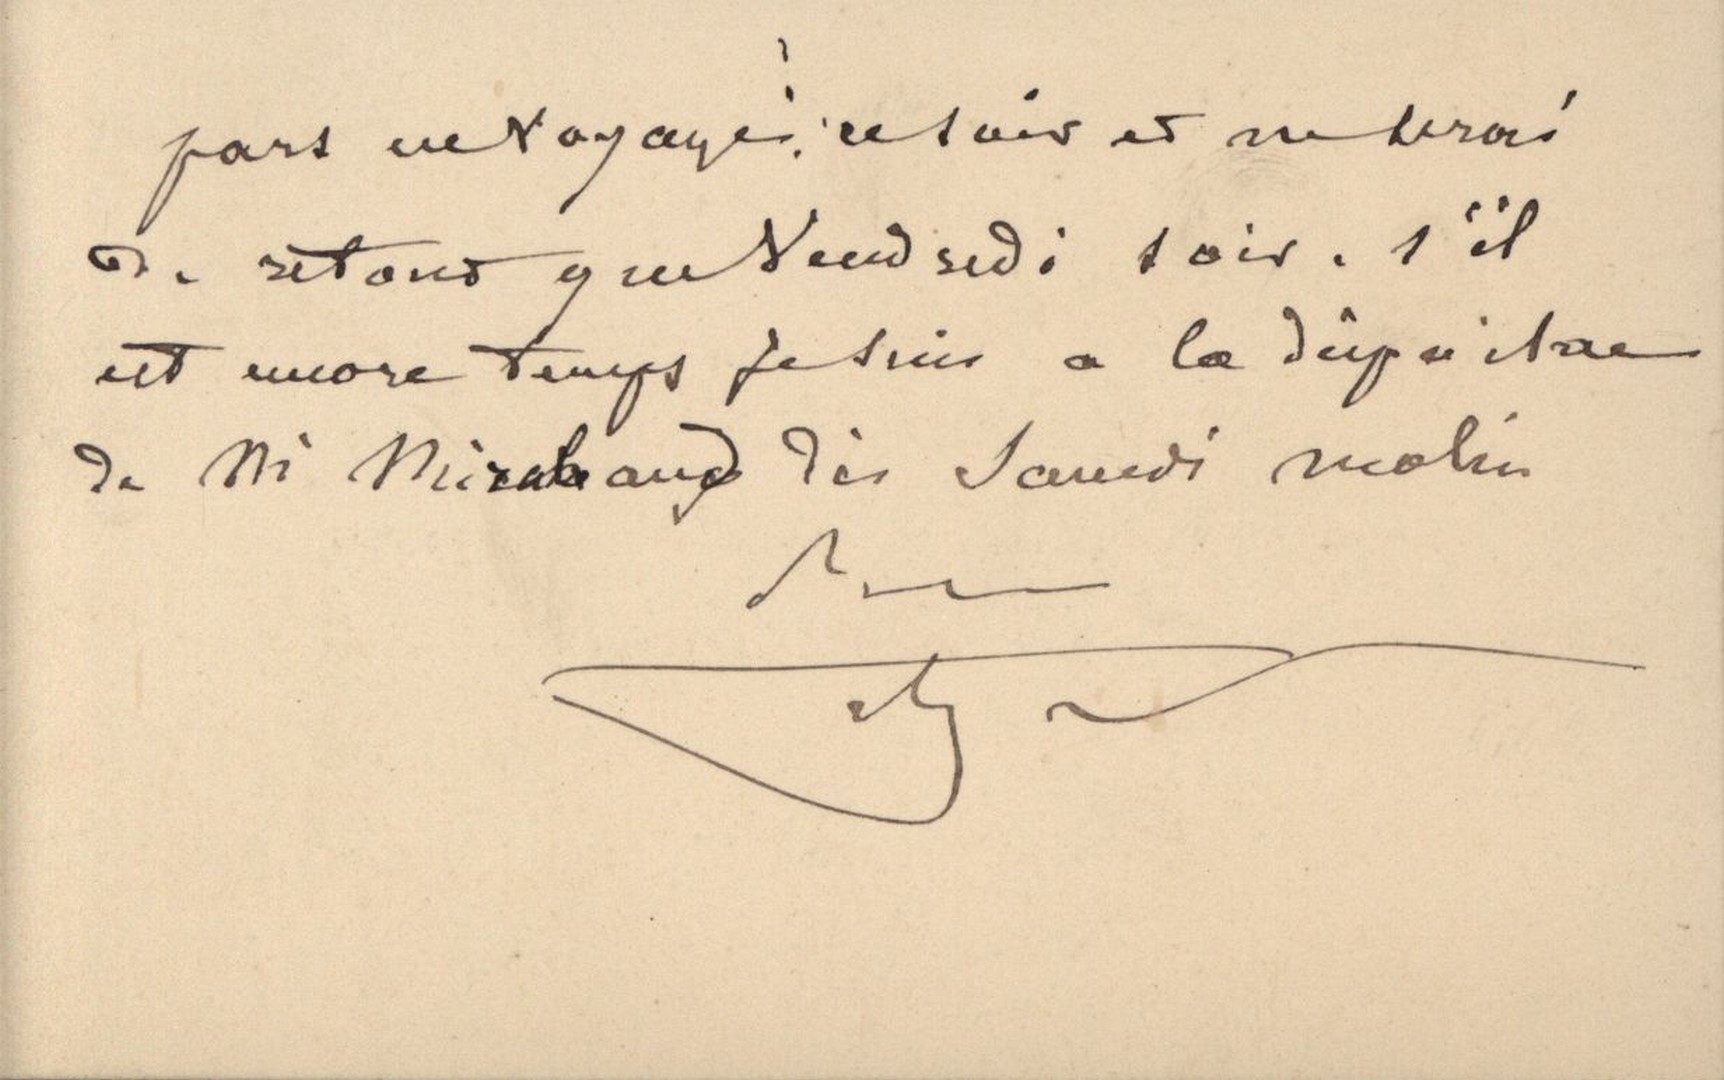 pars en voyage ce soir et ne serai
de retour que Vendredi soir. s'il
est encore temps je suis a la disposition
de Mr Mirabaud dès Samedi matin